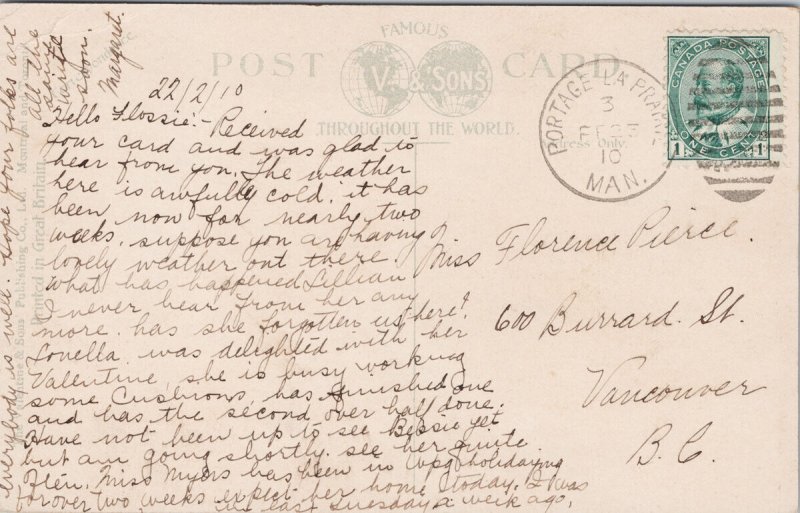 FAMOUS
POST CARD
V. & SONS
THROUGHOUT THE WORLD.
Address Only.
CANADA POSTAGE
ONE CENT
1 1
PORTAGE LA PRAIRIE
3
FE 23
10
MAN.
22/2/10
Hello Flossie:- Received
your card and was glad to
hear from you. The weather
here is awfully cold, it has
been now for nearly two
weeks. suppose you are having
lovely weather out there.
what has happened Lillian
I never hear from her any
more. has she forgotten us here?
Lovella was delighted with her
Valentine, she is busy working
some Cushions, has finished one
and has the second over half done.
Have not been up to see Bessie yet
but am going shortly. see her quite
often. Miss Myers has been in wpg holidaying
for over two weeks expect her home today. I was
in last Tuesday a week ago,
everybody is well. Hope your folks are
all the
same
write
soon.
Margaret.
Miss Florence Pierce.
600 Burrard St.
Vancouver
B.C.
Printed in Great Britain.
& Sons' Publishing Co., Ltd. Montreal and